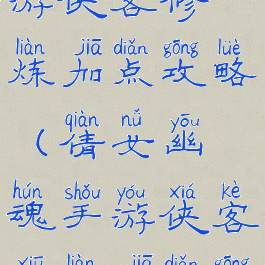 游侠客修
liàn jiā diǎn gōng lüè
炼加点攻略
qiàn nǚ yōu
（倩女幽
hún shǒu yóu xiá kè
魂手游侠客
xiū liàn jiā diǎn gōng